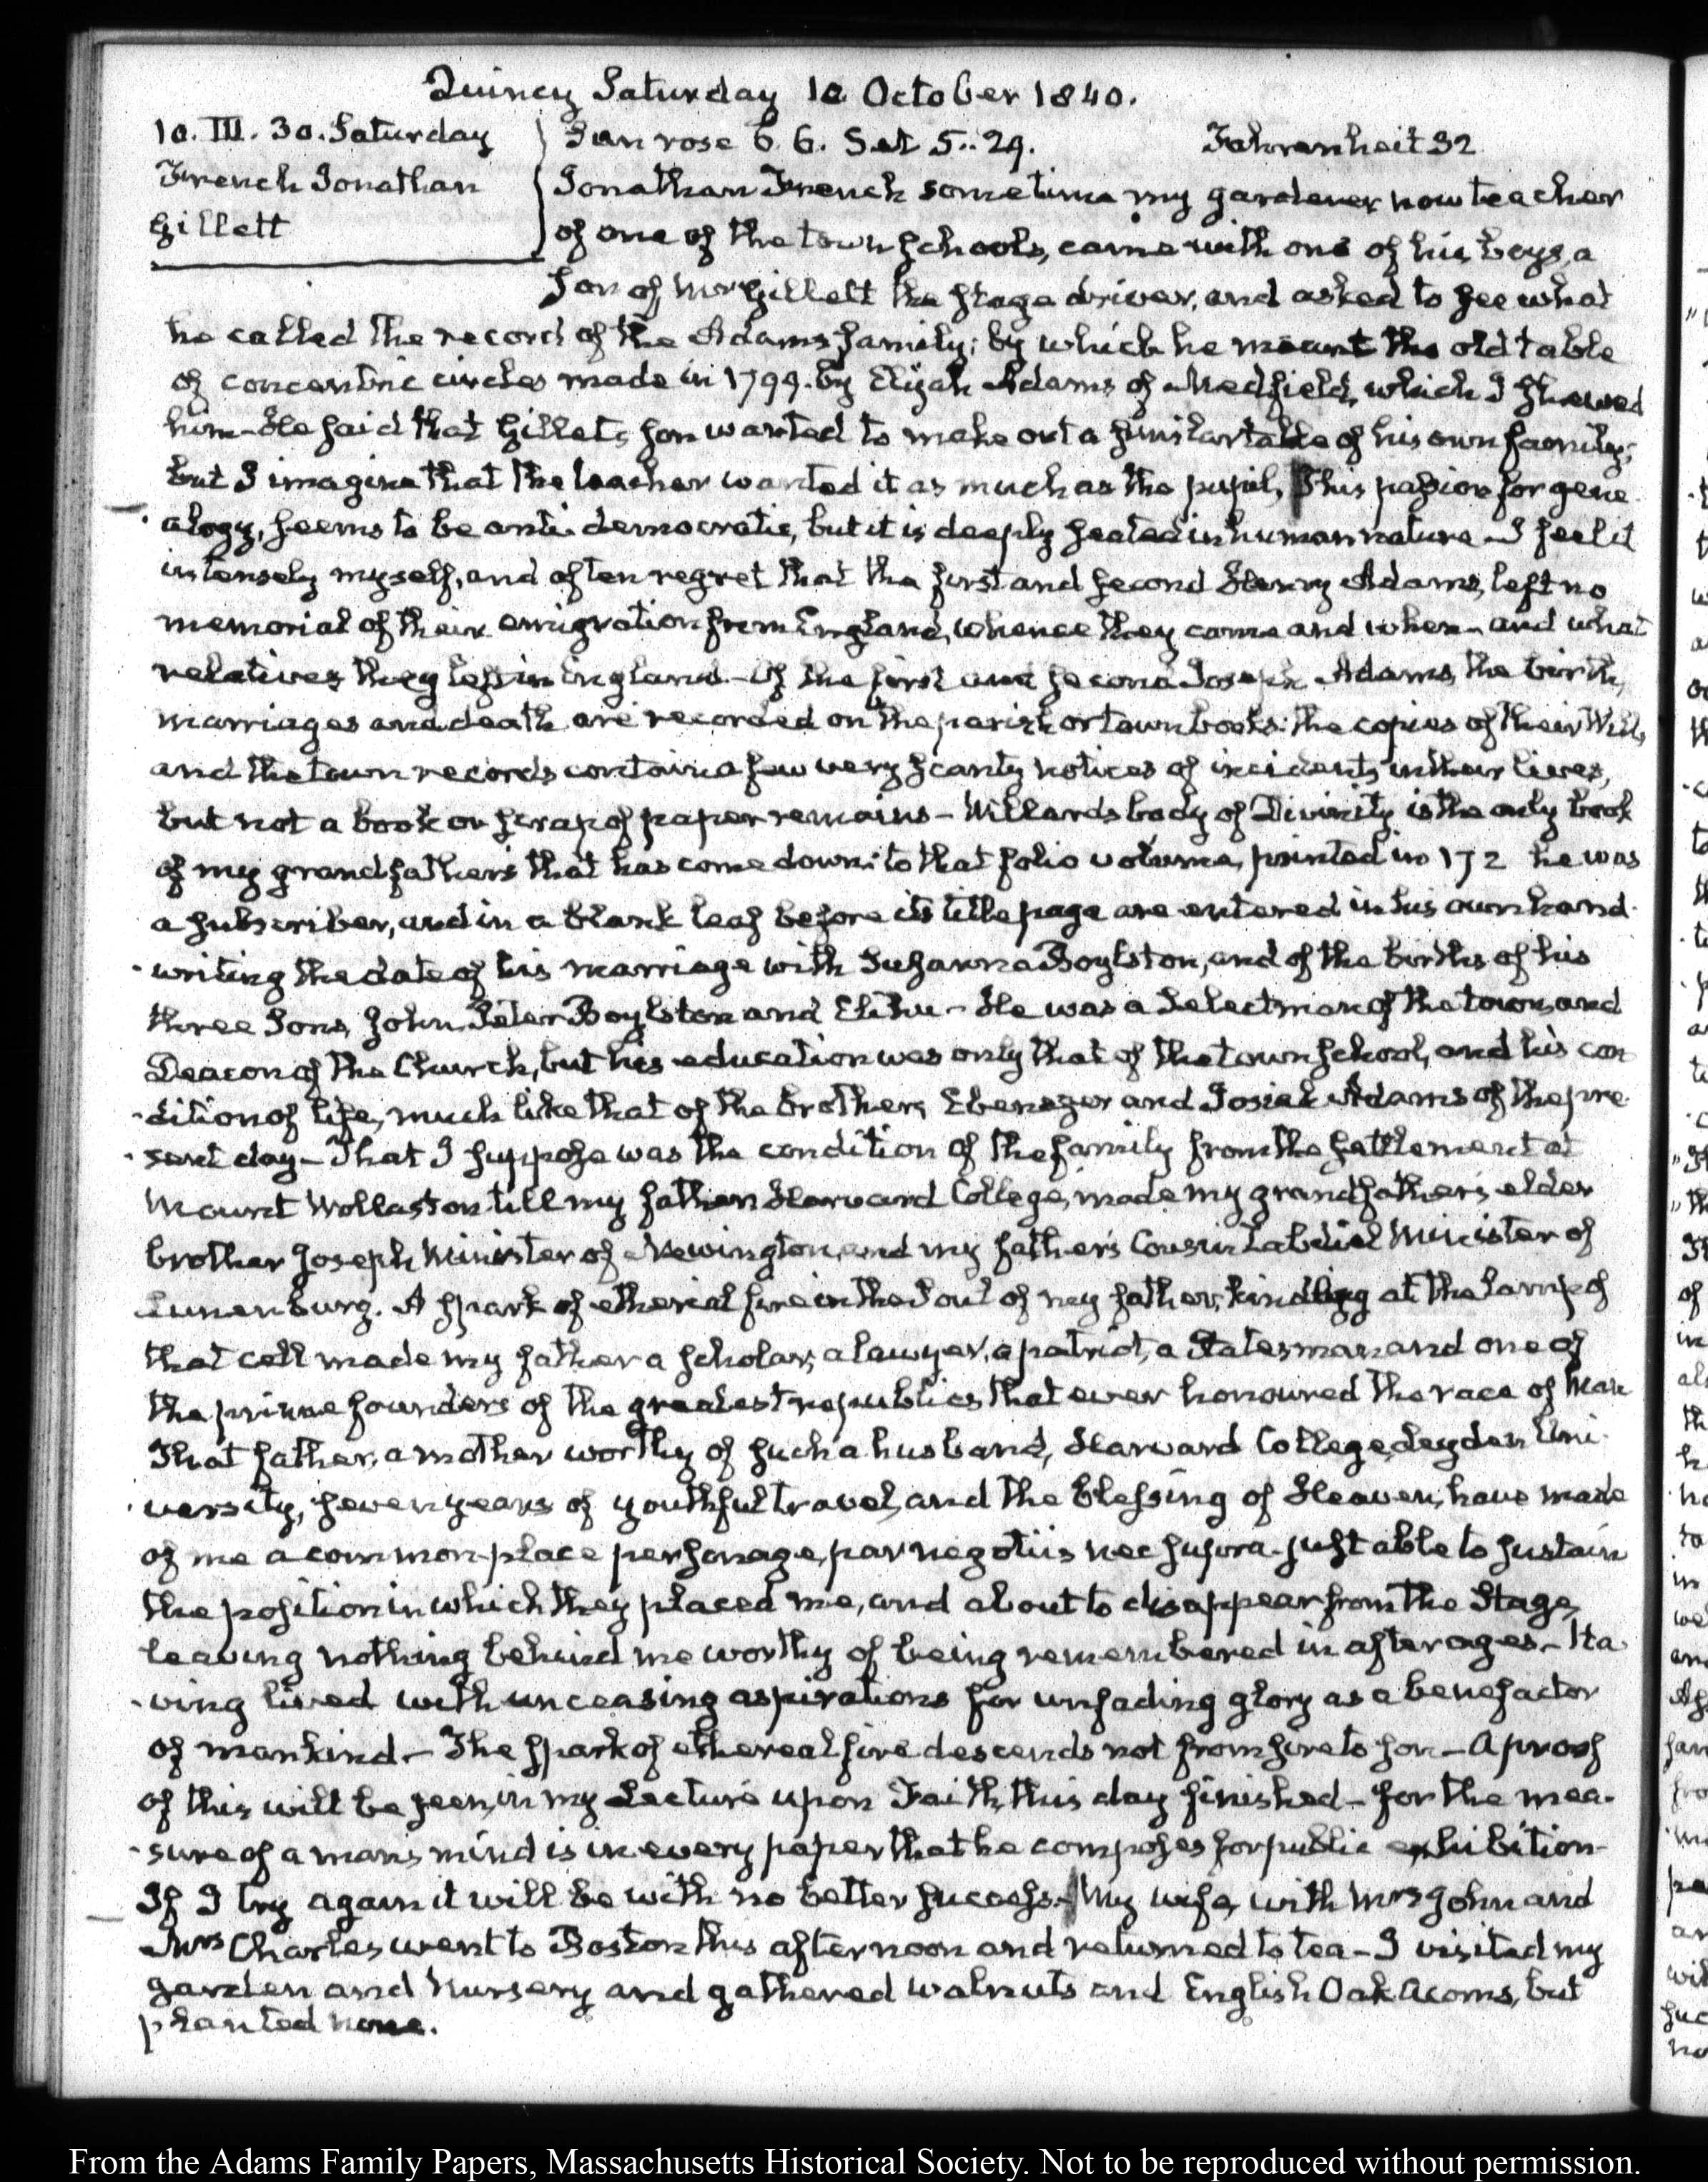 Quincy Saturday 10 October 1840.
10. III. 30. Saturday
French Jonathan
Gillett
Sun rose 6. 6. Set 5..29. Fahrenheit 32
Jonathan French sometime my gardener now teacher
of one of the town schools, came with one of his boys, a
son of Mr Gillett the stage driver, and asked to see what
he called the record of the Adams family; by which he meant the old table
of concentric circles made in 1799. by Elijah Adams of Medfield, which I shewed
him—He said that Gillet's son wanted to make out a similar table of his own family;
but I imagine that the teacher wanted it as much as the pupil, This passion for gene
alogy, seems to be anti democratic, but it is deeply seated in human nature—I feel it
intensely myself, and often regret that the first and second Henry Adams, left no
memorial of their emigration from England, whence they came and when—and what
relatives they left in England—Of the first and second Joseph Adams, the birth,
marriages and death are recorded on the parish or town books: the copies of their Wills,
and the town records contain a few very scanty notices of incidents in their lives,
but not a book or scrap of paper remains—Willards body of Divinity is the only book
of my grandfather's that has come down: to that folio volume, printed in 172 he was
a subscriber, and in a blank leaf before its title page are entered in his own hand-
-writing the date of his marriage with Susanna Boylston, and of the births of his
three Sons, John, Peter Boylston and Elihu—He was a Selectman of the town, and
Deacon of the Church, but his education was only that of the town school, and his con
-dition of life, much like that of the brothers, Ebenezer and Josiah Adams of the pre-
-sent day—That I suppose was the condition of the family from the settlement at
Mount Wollaston till my father. Harvard College, made my grandfather's elder
brother Joseph Minister of Newington, and my father's Cousin Zabdiel Minister of
Lunenburg. A spark of etherial fire in the Soul of my father, kindling at the Lamp of
that cell made my father a scholar, a lawyer, a patriot, a Statesman and one of
the prime founders of the greatest republics that ever honoured the race of Man
That father, a mother worthy of such a husband, Harvard College, Leyden Uni-
-versity, seven years of youthful travel, and the blessing of Heaven, have made
of me a common-place personage, par negotiis nec supra—just able to sustain
the position in which they placed me, and about to disappear from the Stage,
leaving nothing behind me worthy of being remembered in after ages—Ha-
-ving lived with unceasing aspirations for unfading glory as a benefactor
of mankind—The spark of ethereal fire descends not from sire to son—A proof
of this will be seen, in my Lecture upon Faith, this day finished—for the mea-
-sure of a man's mind is in every paper that he composes for public exhibition—
If I try again it will be with no better success.—My wife, with Mrs John and
Mrs Charles, went to Boston this afternoon and returned to tea—I visited my
garden and Nursery and gathered walnuts and English Oak Acorns, but
planted none.
From the Adams Family Papers, Massachusetts Historical Society. Not to be reproduced without permission.